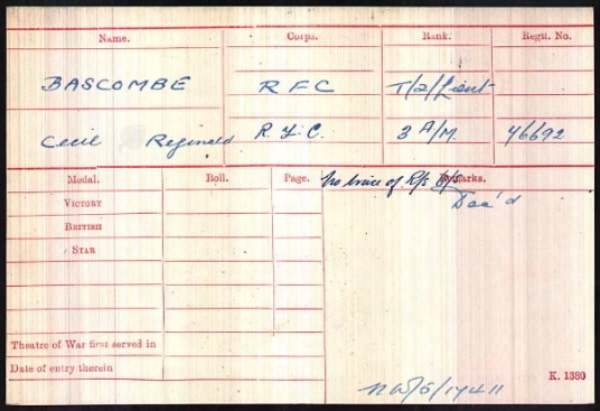 Name. Corps. Rank. Regtl. No.
BASCOMBE RFC T/2/Lieut
Cecil Reginald R.F.C. 3 A/M. 46692
Medal. Roll. Page. No trace of R/s Remarks.
Dec'd
VICTORY
BRITISH
STAR
Theatre of War first served in
Date of entry therein
K. 1380
NW/5/17411